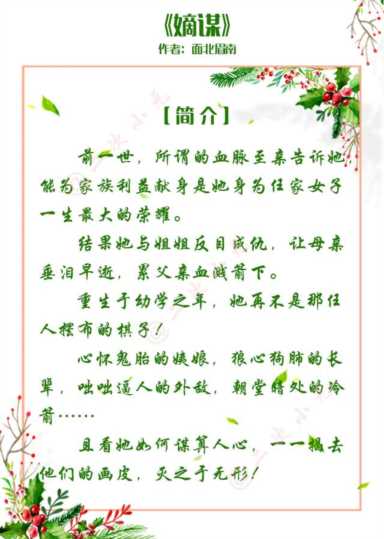 《嫡谋》
作者：面北眉南
【简介】
前一世，所谓的血脉至亲告诉她
能为家族利益献身是她身为任家女子
一生最大的荣耀。
结果她与姐姐反目成仇，让母亲
垂泪早逝，累父亲血溅箭下。
重生于幼学之年，她再不是那任
人摆布的棋子！
心怀鬼胎的姨娘，狼心狗肺的长
辈，咄咄逼人的外敌，朝堂暗处的冷
箭……
且看她如何谋算人心，一一揭去
他们的画皮，灭之于无形！